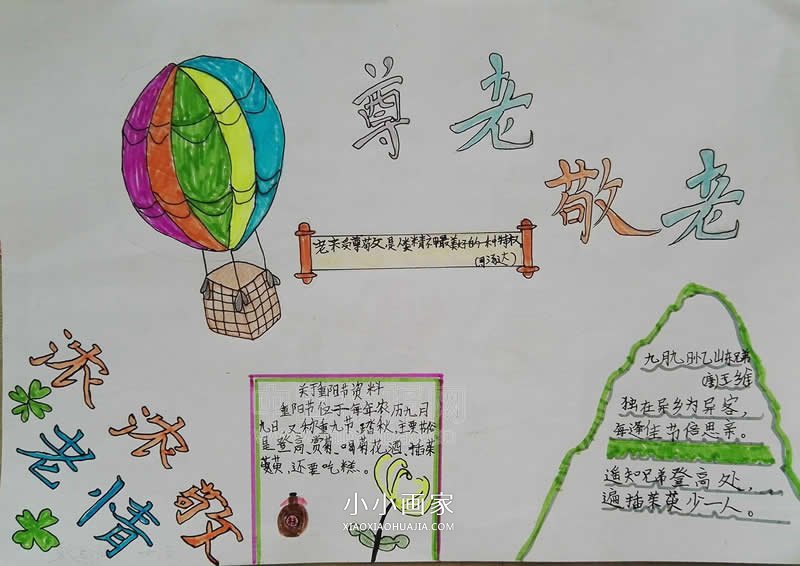 尊老
敬老
老来受尊敬,是人类精神最美好的一种特权
浓浓敬
老情
关于重阳节资料
重阳节位于每年农历九月
九日,又称重九节、踏秋,主要节俗
是登高、赏菊、喝菊花酒、插茱
萸,还要吃糕。
九月九日忆山东兄弟
(唐)王维
独在异乡为异客,
每逢佳节倍思亲。
遥知兄弟登高处,
遍插茱萸少一人。
小小画家
XIAOXIAOHUAJIA.COM